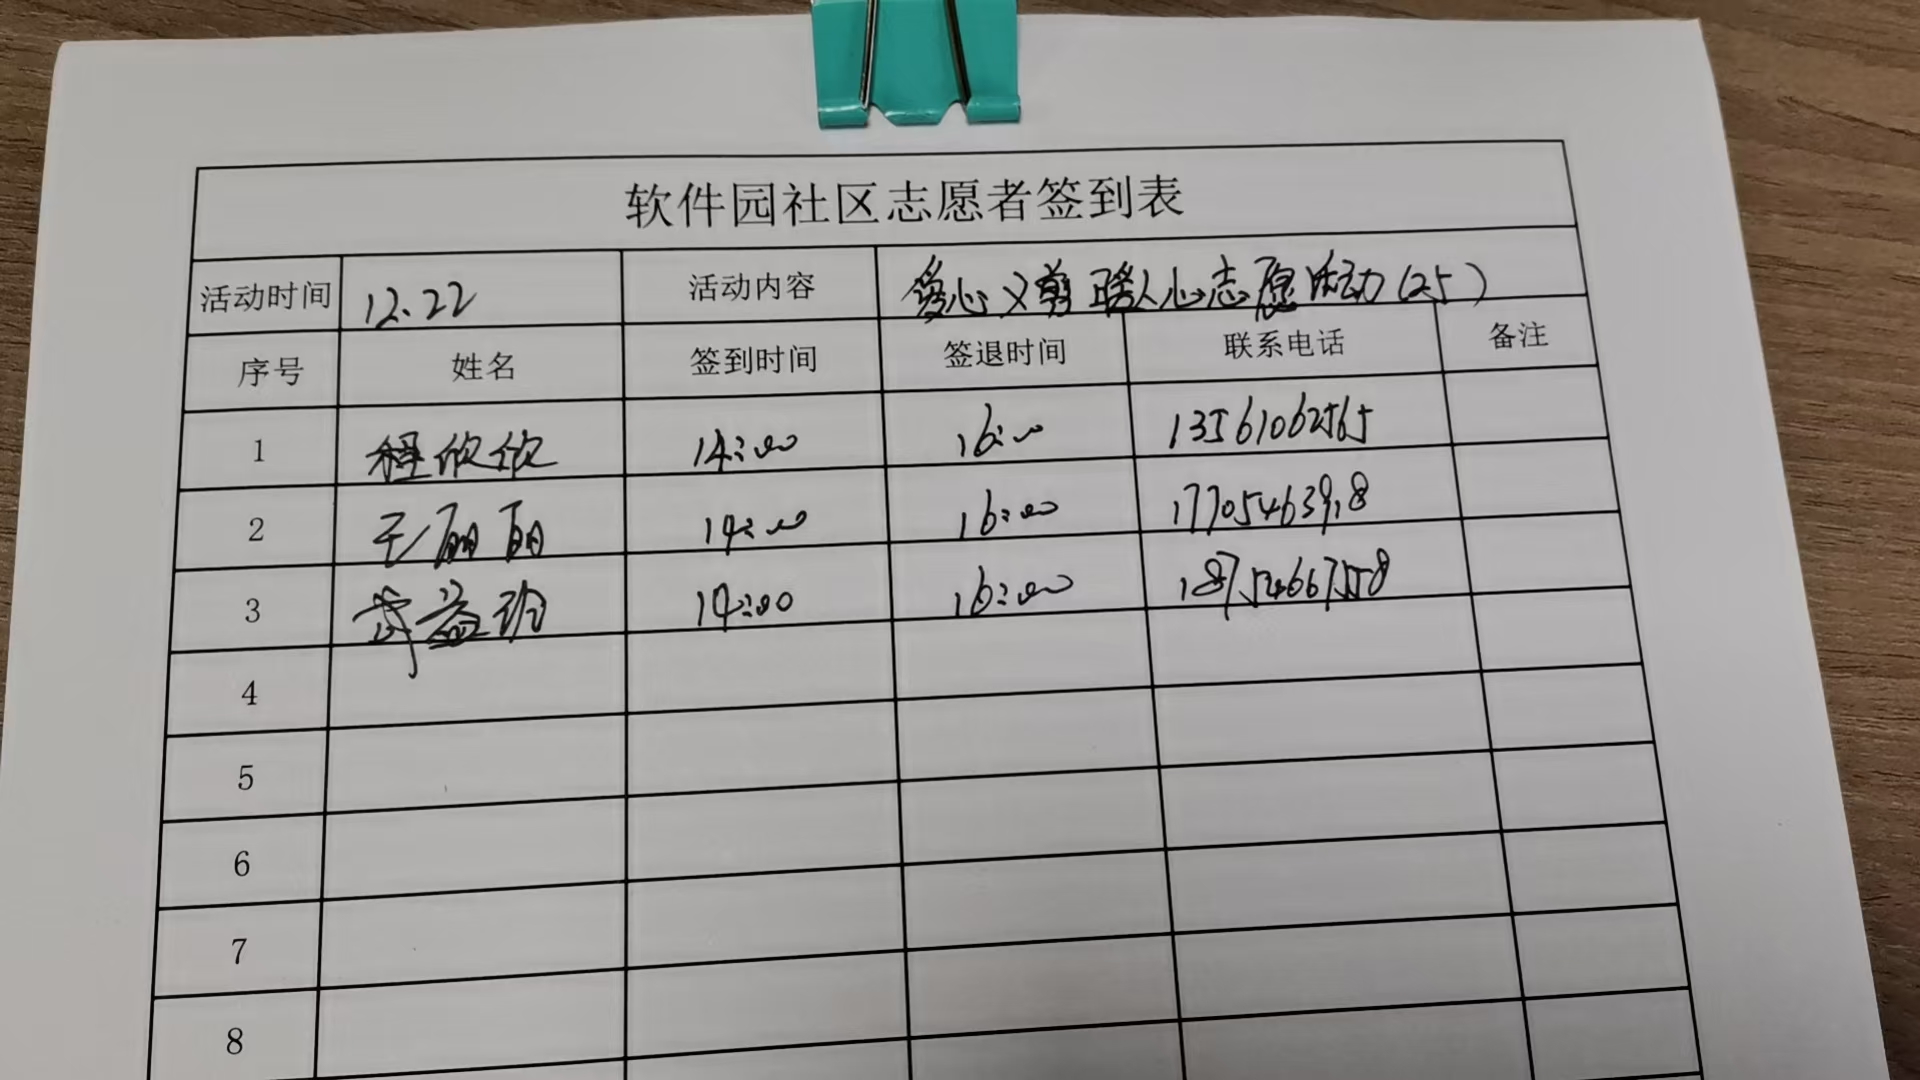 软件园社区志愿者签到表
活动时间 12.22 活动内容 爱心义剪 暖人心志愿活动(25)
序号 姓名 签到时间 签退时间 联系电话 备注
1 程欣欣 14:00 16:00 13561062565
2 王丽丽 14:00 16:00 17705463918
3 武益玲 14:00 16:00 18754667558
4
5
6
7
8